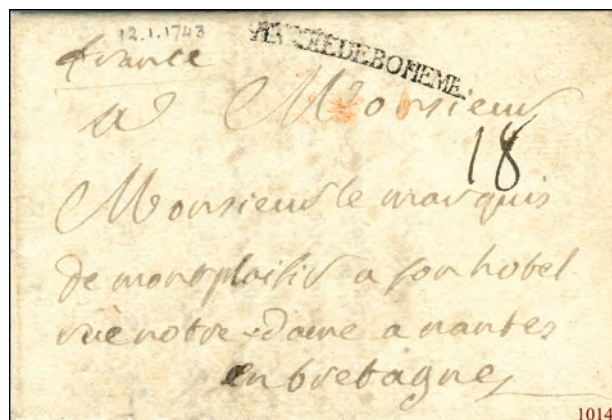 12.1.1743
france
DEBOHEME
a Monsieur
18
Monsieur le marquis
de montplaisir a son hotel
rüe notre dame a nantes
en bretagne
1014